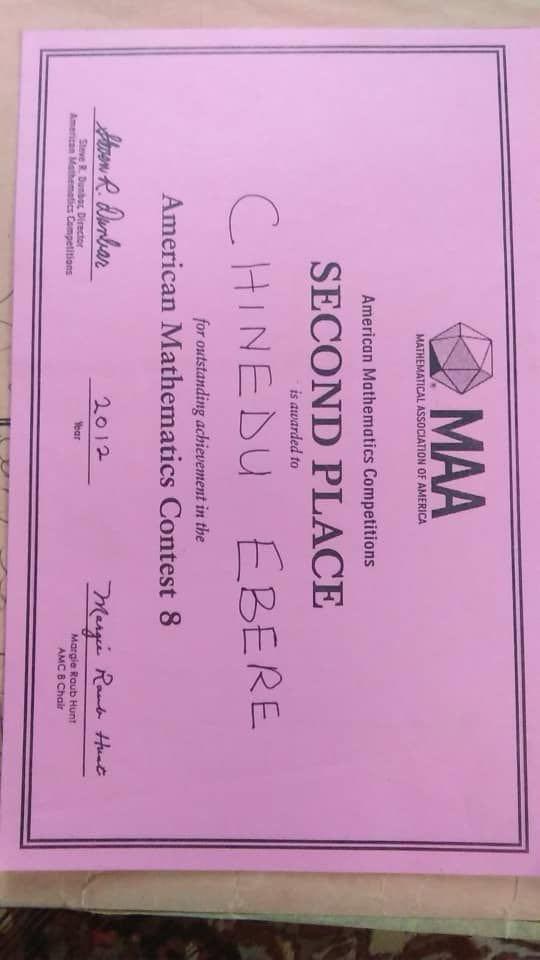 MAA
MATHEMATICAL ASSOCIATION OF AMERICA
American Mathematics Competitions
SECOND PLACE
is awarded to
CHINEDU EBERE
for outstanding achievement in the
American Mathematics Contest 8
Steven R. Dunbar
2012
Margie Raub Hunt
Steve R. Dunbar, Director
American Mathematics Competitions
Year
Margie Raub Hunt
AMC 8 Chair